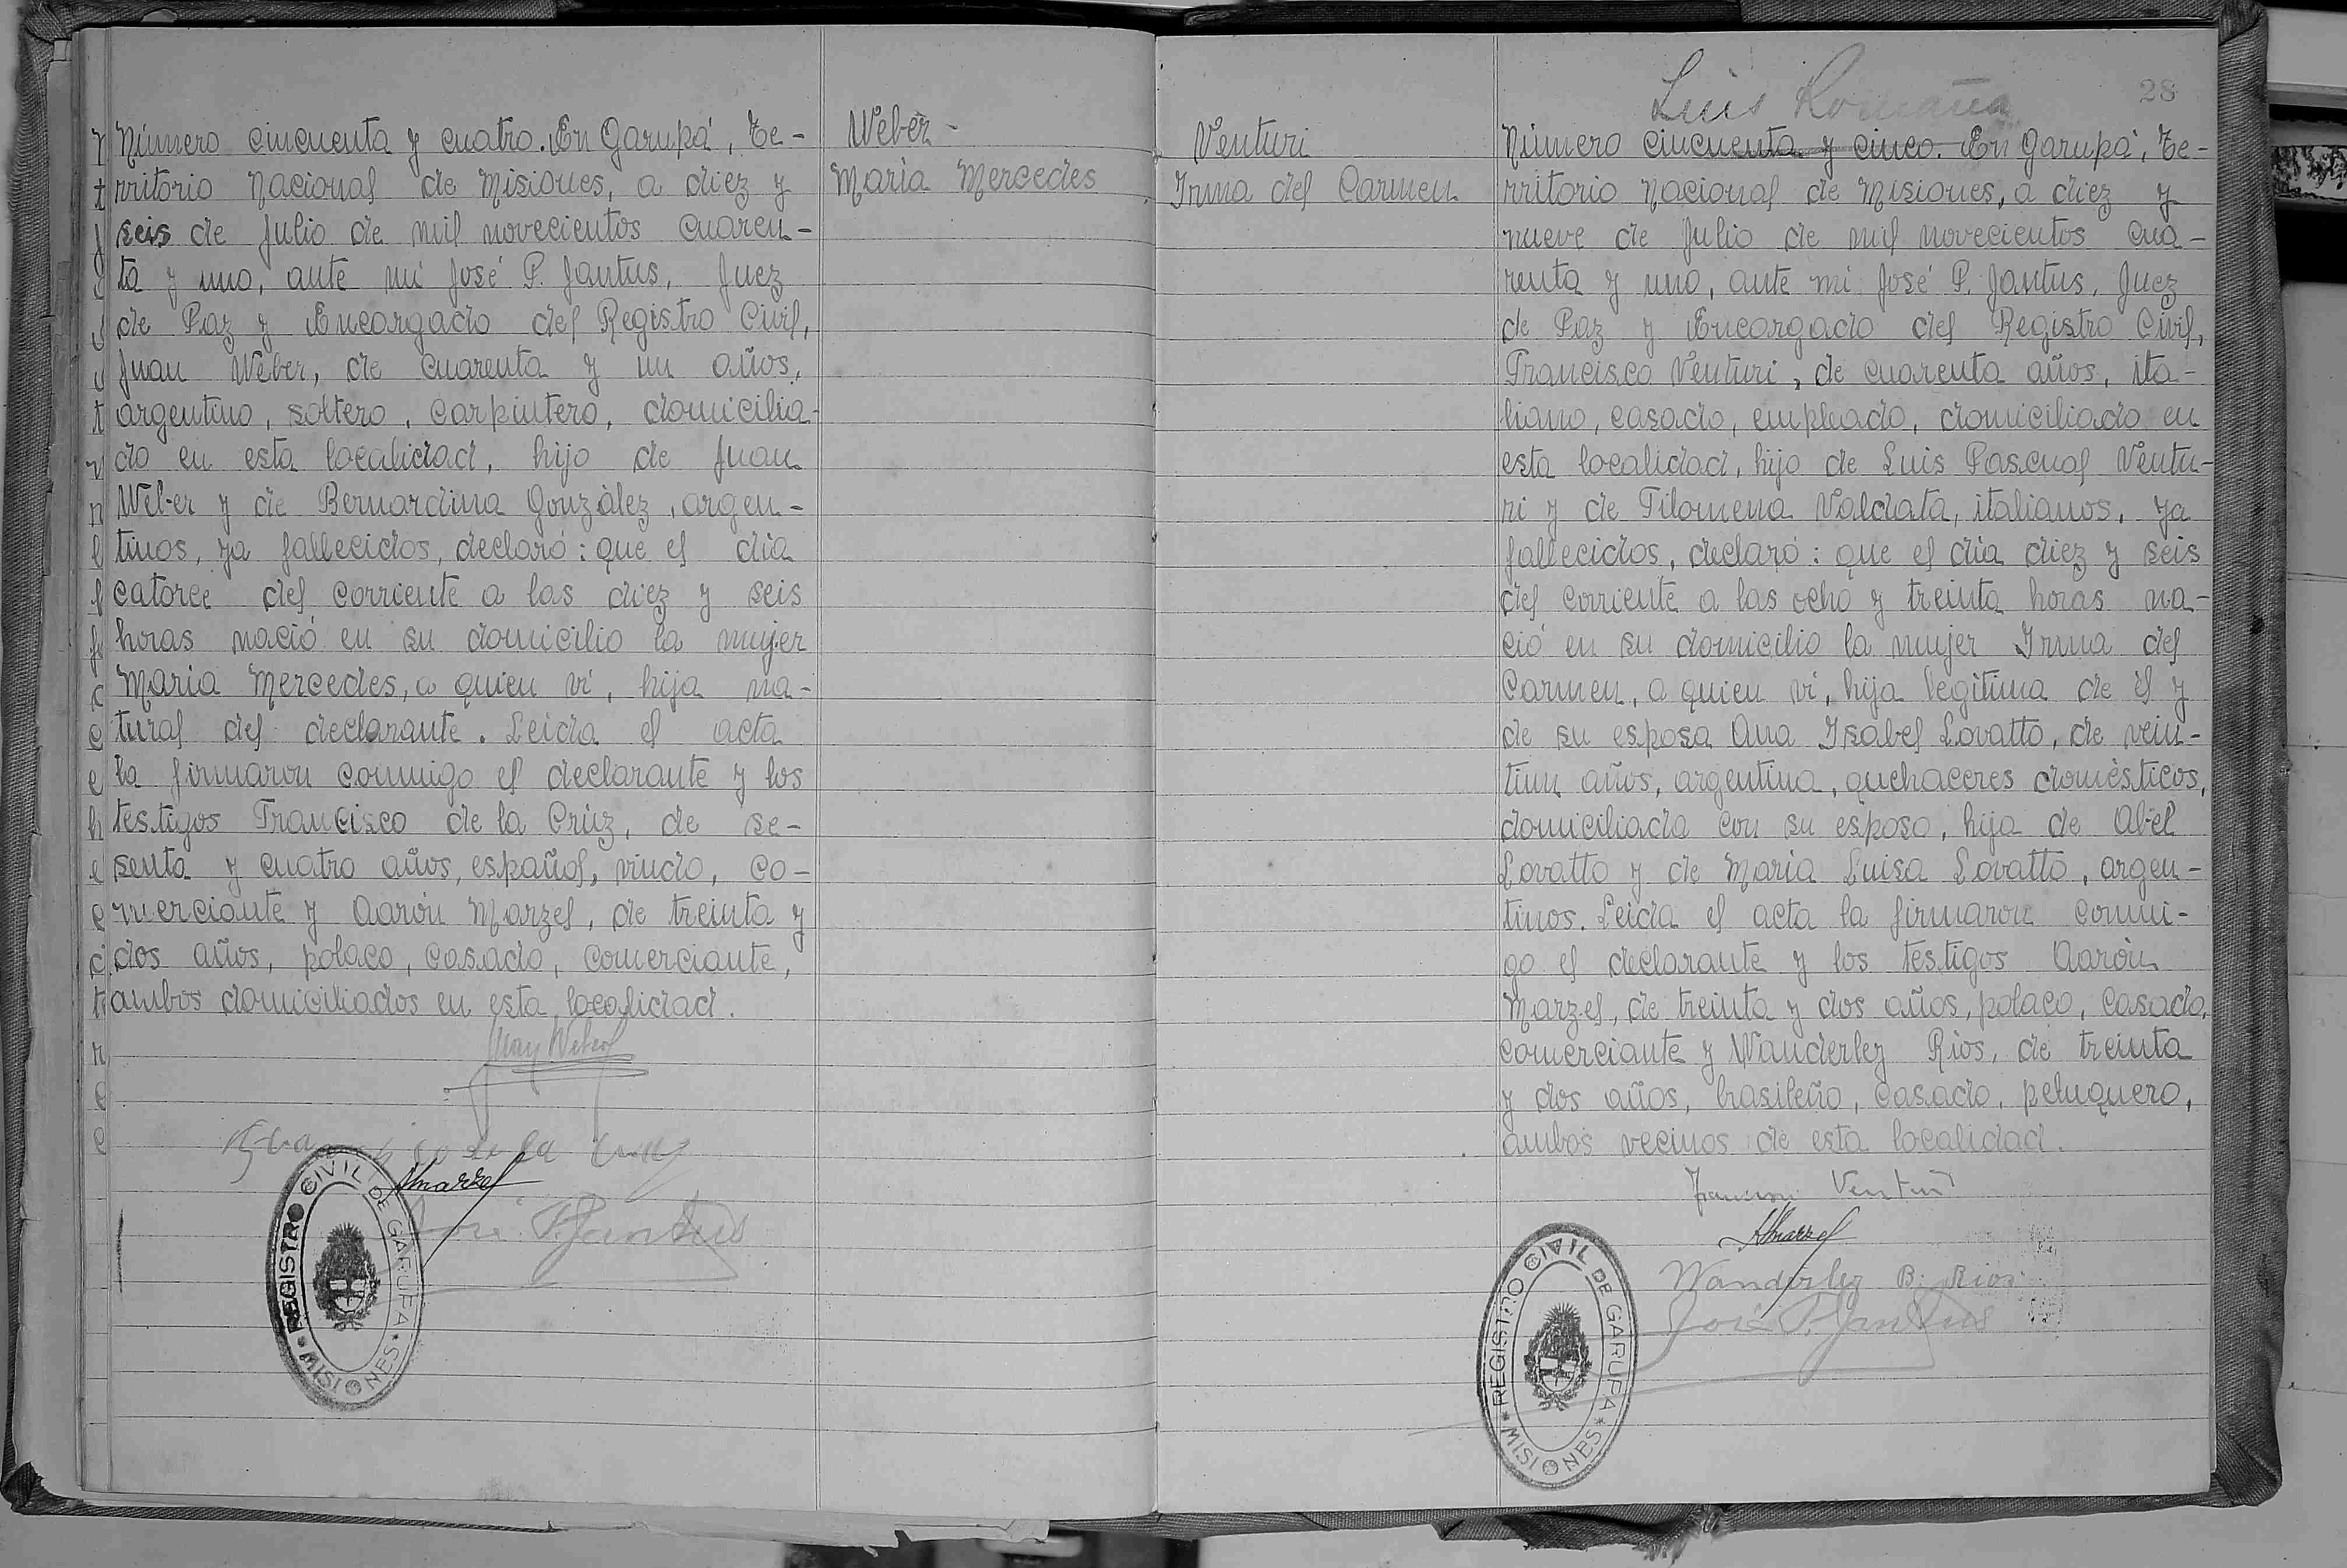 Número cincuenta y cuatro. En Garupá, Te-
rritorio Nacional de Misiones, a diez y
seis de Julio de mil novecientos cuaren-
ta y uno, ante mi José P. Jantus, Juez
de Paz y Encargado del Registro Civil,
Juan Weber, de cuarenta y un años,
argentino, soltero, carpintero, domicilia-
do en esta localidad, hijo de Juan
Weber y de Bernardina González, argen-
tinos, ya fallecidos, declaró: que el día
catorce del corriente a las diez y seis
horas nació en su domicilio la mujer
María Mercedes, a quien ví, hija na-
tural del declarante. Leída el acta
la firmaron conmigo el declarante y los
testigos Francisco de la Crúz, de se-
senta y cuatro años, español, viudo, co-
merciante y Aarón Marzel, de treinta y
dos años, polaco, casado, comerciante,
ambos domiciliados en esta localidad.
Juan Weber
Francisco de la Cruz
AMarzel
José P. Jantus
REGISTRO CIVIL DE GARUPA
* MISIONES *
Weber-
María Mercedes
Venturi
Irma del Carmen
Luis Romaña
28
Número cincuenta y cinco. En Garupá, Te-
rritorio Nacional de Misiones, a diez y
nueve de Julio de mil novecientos cua-
renta y uno, ante mi José P. Jantus, Juez
de Paz y Encargado del Registro Civil,
Francisco Venturi, de cuarenta años, ita-
liano, casado, empleado, domiciliado en
esta localidad, hijo de Luis Pascual Ventu-
ri y de Filomena Valdata, italianos, ya
fallecidos, declaró: que el día diez y seis
del corriente a las ocho y treinta horas na-
ció en su domicilio la mujer Irma del
Carmen, a quien ví, hija legítima de él y
de su esposa Ana Isabel Lovatto, de vein-
tiun años, argentina, quehaceres domésticos,
domiciliada con su esposo, hija de Abel
Lovatto y de María Luisa Lovatto, argen-
tinos. Leída el acta la firmaron conmi-
go el declarante y los testigos Aarón
Marzel, de treinta y dos años, polaco, casado,
comerciante y Wanderley Ríos, de treinta
y dos años, brasileño, casado, peluquero,
ambos vecinos de esta localidad.
Francisco Venturi
AMarzel
Wanderley B. Rios
José P. Jantus
REGISTRO CIVIL DE GARUPA
* MISIONES *